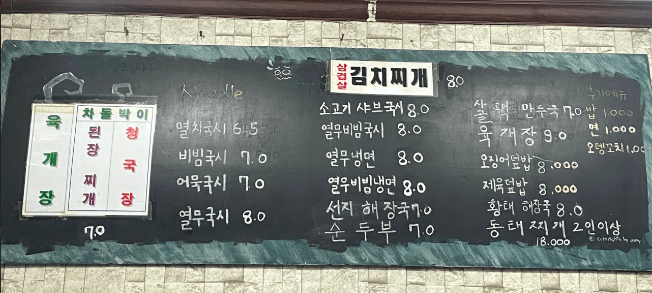 육개장
차돌박이
된장찌개
청국장
7.0
Noodle
열치국시 6.5
비빔국시 7.0
어묵국시 7.0
열무국시 8.0
삼겹살 김치찌개 8.0
소고기 샤브국시 8.0
열무비빔국시 8.0
열무냉면 8.0
열무비빔냉면 8.0
선지 해장국 7.0
순두부 7.0
만두국 7.0
육개장 9.0
오징어덮밥 8,000
제육덮밥 8,000
황태 해장국 8.0
동태찌개 2인이상
18.000
추가메뉴
밥 1.000
면 1.000
오뎅꼬치 1.00